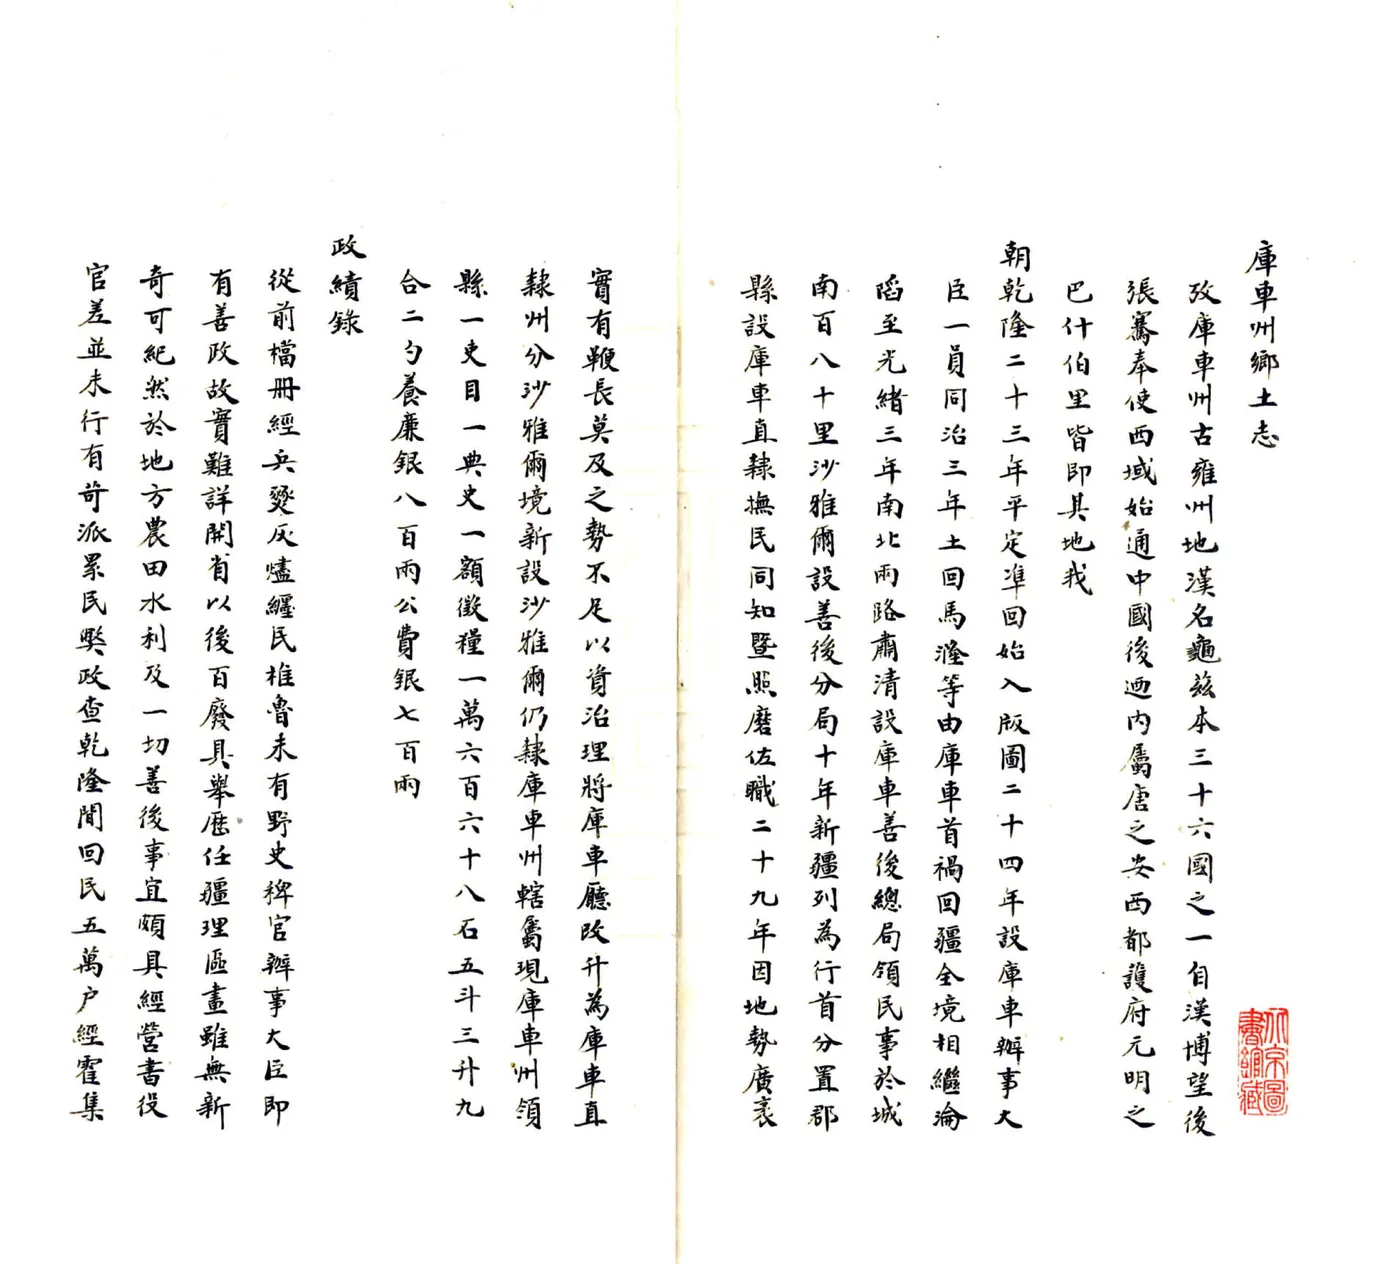 庫車州鄉土志
攷庫車州古雍州地漢名龜茲本三十六國之一自漢博望後
張騫奉使西域始通中國後迺內屬唐之安西都護府元明之
巴什伯里皆即其地我
朝乾隆二十三年平定準回始入版圖二十四年設庫車辦事大
臣一員同治三年土回馬漋等由庫車首禍回疆全境相繼淪
滔至光緒三年南北兩路肅清設庫車善後總局領民事於城
南百八十里沙雅爾設善後分局十年新疆列為行首分置郡
縣設庫車直隸撫民同知暨照磨佐職二十九年因地勢廣袤
實有鞭長莫及之勢不足以資治理將庫車廳改升為庫車直
隸州分沙雅爾境新設沙雅爾仍隸庫車州轄屬現庫車州領
縣一吏目一典史一額徵糧一萬六百六十八石五斗三升九
合二勺養廉銀八百兩公費銀七百兩
政績錄
從前檔冊經兵燹灰燼纏民椎魯未有野史稗官辦事大臣即
有善政故實難詳開省以後百廢具舉歷任疆理區畫雖無新
奇可紀然於地方農田水利及一切善後事宜頗具經營書役
官差並未行有苛派累民獘政查乾隆間回民五萬户經霍集
北京圖
書館藏